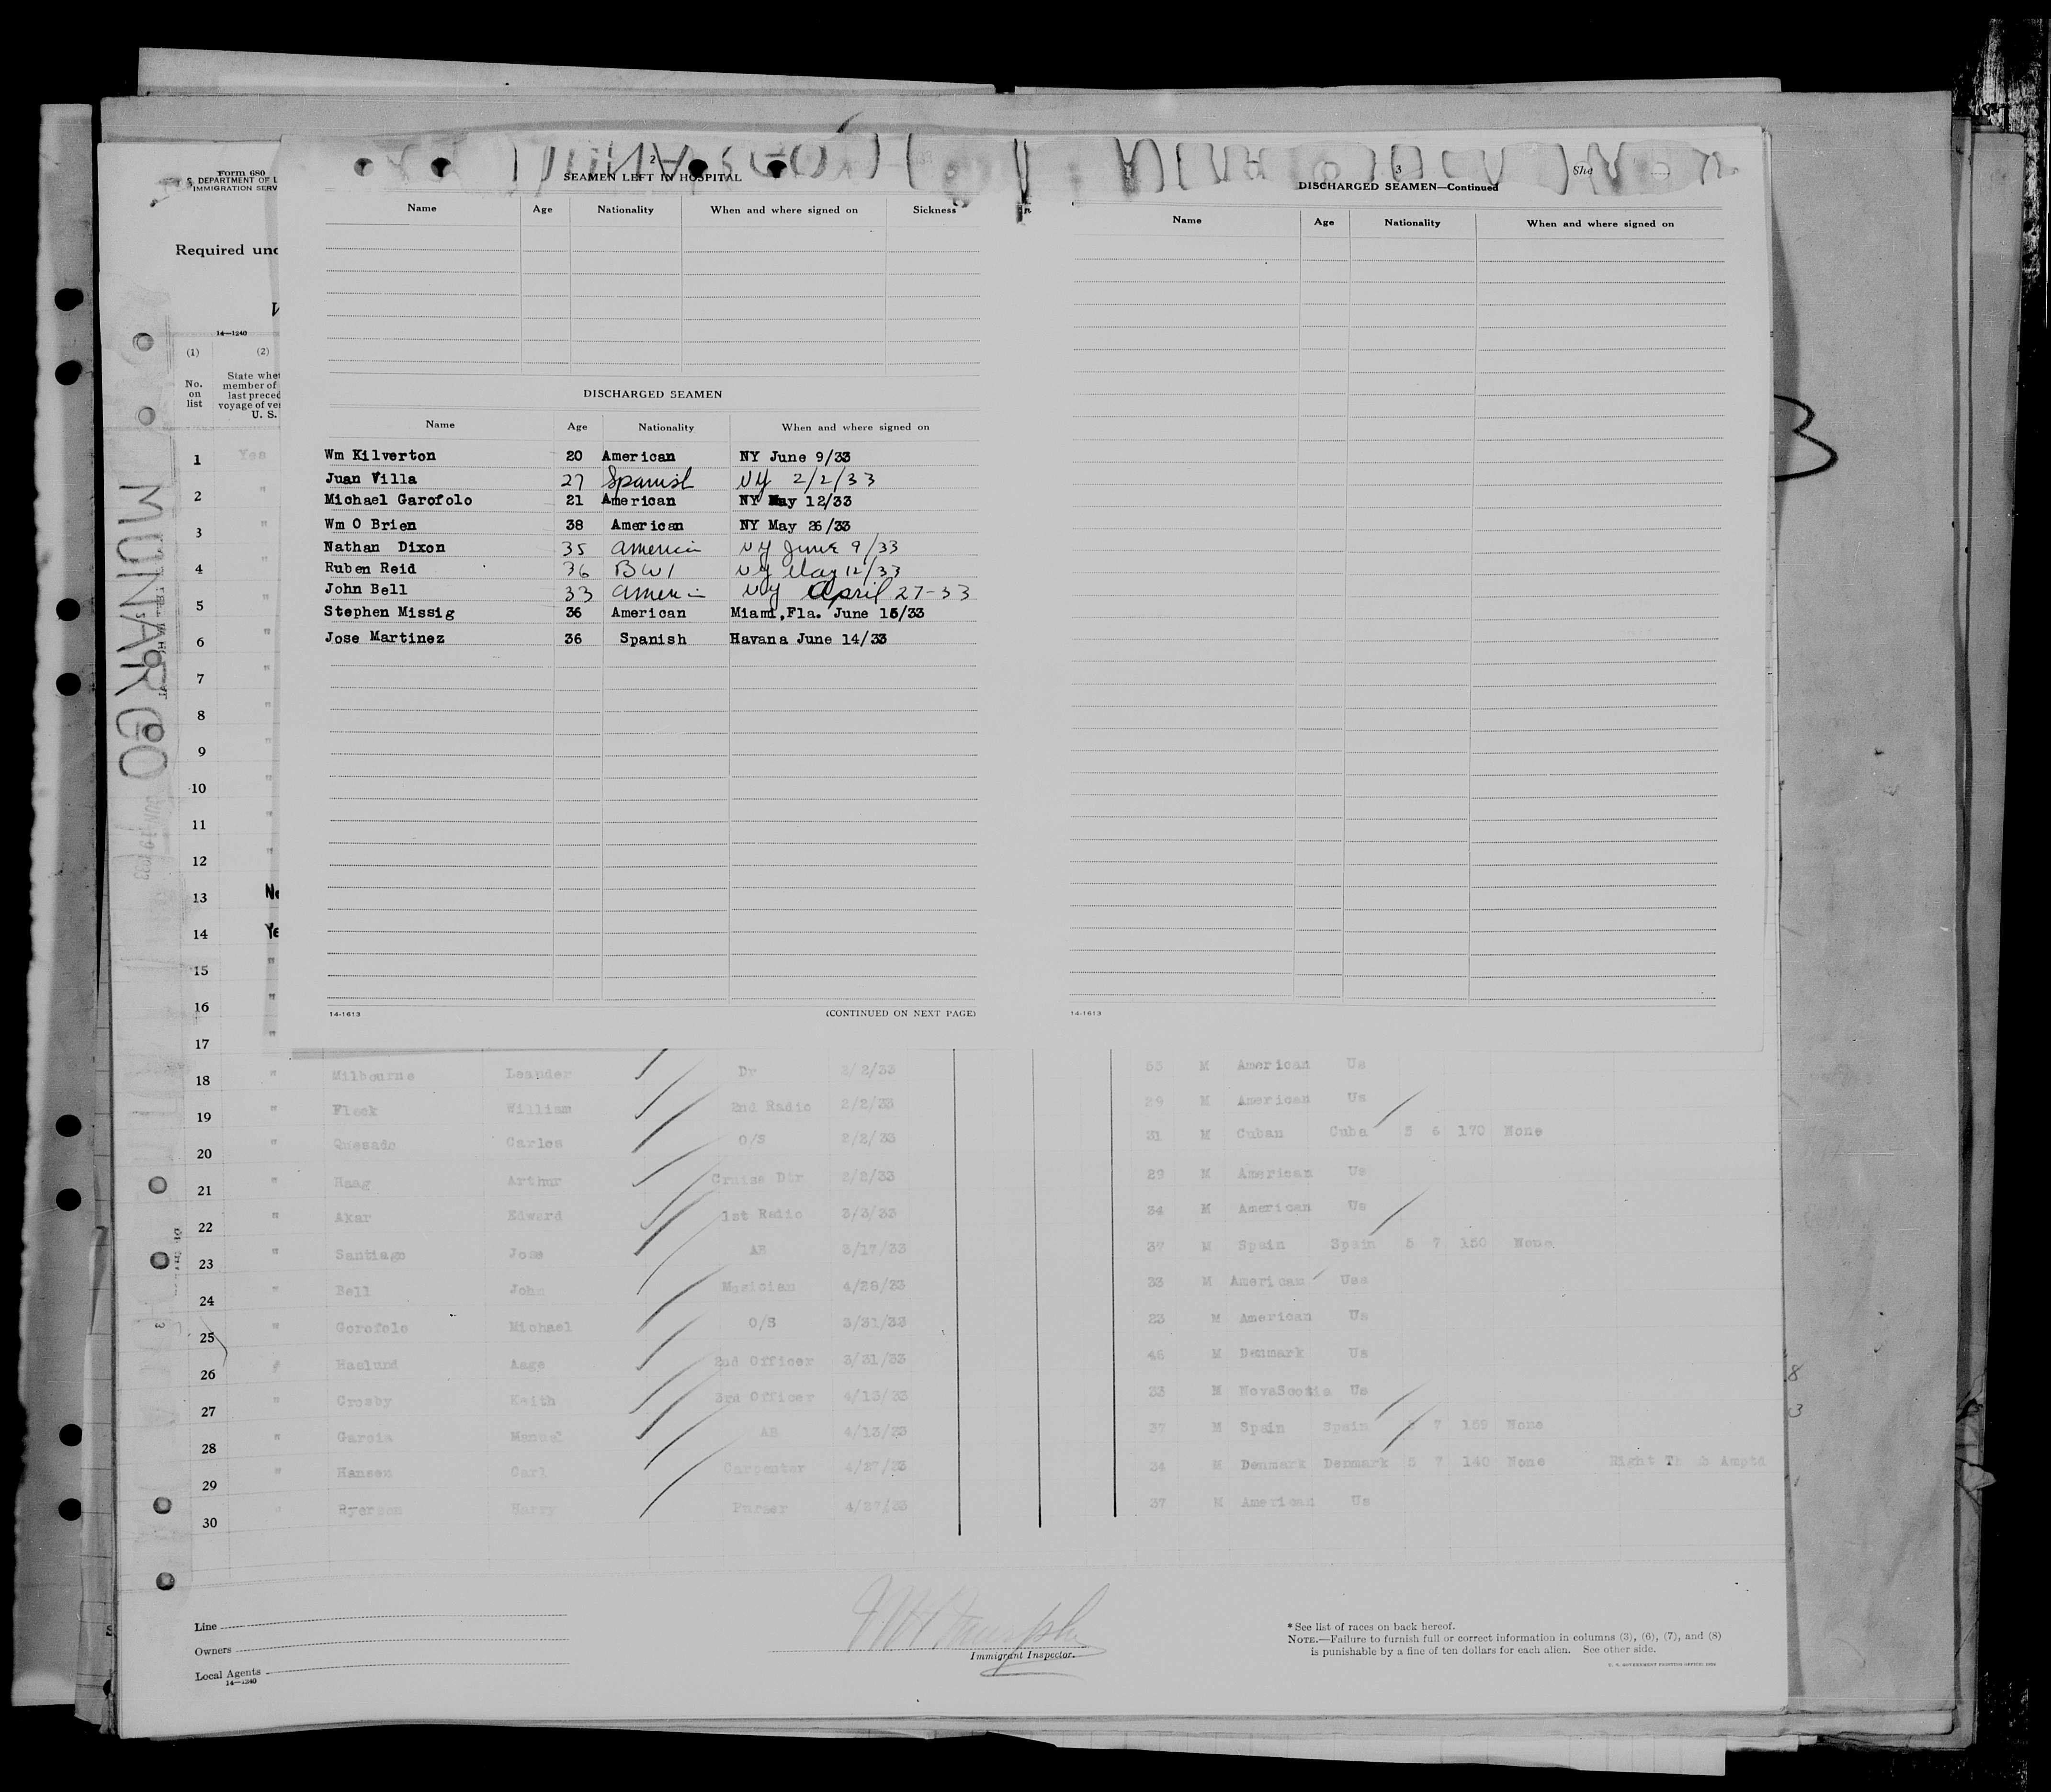 Form 680
S. DEPARTMENT OF L
IMMIGRATION SERV
Required und
14—1240
(1) (2)
No. on list
State whe
member of
last preced
voyage of ves
U. S.
MUNARGO
2
SEAMEN LEFT IN HOSPITAL
Name Age Nationality When and where signed on Sickness
DISCHARGED SEAMEN
Name Age Nationality When and where signed on
Wm Kilverton 20 American NY June 9/33
Juan Villa 27 Spanish NY 2/2/33
Michael Garofolo 21 American NY May 12/33
Wm O Brien 38 American NY May 26/33
Nathan Dixon 35 American NY June 9/33
Ruben Reid 36 BWI NY May 12/33
John Bell 33 American NY April 27-33
Stephen Missig 36 American Miami,Fla. June 15/33
Jose Martinez 36 Spanish Havana June 14/33
14-1613 (CONTINUED ON NEXT PAGE)
3
DISCHARGED SEAMEN—Continued
She
Name Age Nationality When and where signed on
14-1613
3
1 Yes
2 "
3 "
4 "
5 "
6 "
7 "
8 "
9 "
10 "
11 "
12 "
13 No
14 Ye
15 "
16 "
17 "
18 " Milbourne Leander Dr 2/2/33 55 M American Us
19 " Fleck William 2nd Radio 2/2/33 29 M American Us
20 " Quesado Carlos O/S 2/2/33 31 M Cuban Cuba 5 6 170 None
21 " Haag Arthur Cruise Dir 2/2/33 29 M American Us
22 " Axar Edward 1st Radio 3/3/33 34 M American Us
23 " Santiago Jose AB 3/17/33 37 M Spain Spain 5 7 150 None
24 " Bell John Musician 4/28/33 33 M American Uss
25 " Gorofolo Michael O/S 3/31/33 23 M American Us
26 " Haslund Aage 2nd Officer 3/31/33 46 M Denmark Us
27 " Crosby Keith 3rd Officer 4/13/33 23 M NovaScotia Us
28 " Garcia Manuel AB 4/13/33 37 M Spain Spain 5 7 159 None
29 " Hansen Carl Carpenter 4/27/33 34 M Denmark Denmark 5 7 140 None Right Th b Amptd
30 " Ryerson Harry Purser 4/27/33 37 M American Us
Line
Owners
Local Agents
14—1240
Immigrant Inspector.
* See list of races on back hereof.
NOTE.—Failure to furnish full or correct information in columns (3), (6), (7), and (8)
is punishable by a fine of ten dollars for each alien. See other side.